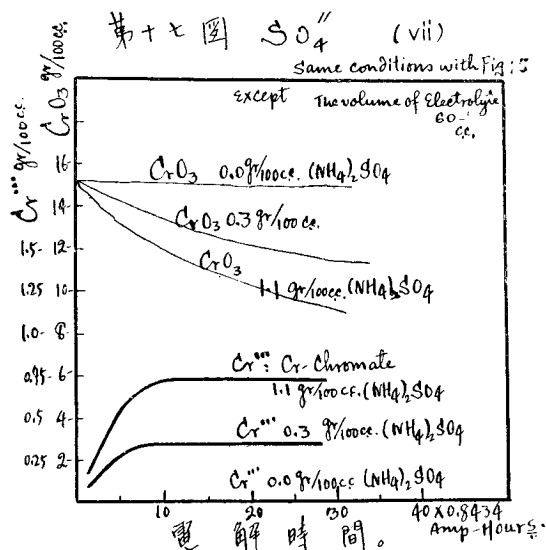 第十七圖 SO₄″ (vii)
Same conditions with Fig: 5
Except The volume of Electrolyte
60-
c.c.
CrO3 gr/100cc.
Cr‴ gr/100cc.
16
14
1.5- 12
1.25 10
1.0- 8
0.75- 6
0.5 4
0.25 2
CrO3 0.0 gr/100cc. (NH4)2SO4
CrO3 0.3 gr/100cc.
CrO3
1.1 gr/100cc. (NH4)2SO4
Cr‴: Cr-Chromate
1.1 gr/100cc. (NH4)2SO4
Cr‴ 0.3 gr/100cc. (NH4)2SO4
Cr‴ 0.0 gr/100cc (NH4)2SO4
10 20 30 40 X0.8434
Amp-Hours.
電解時間。